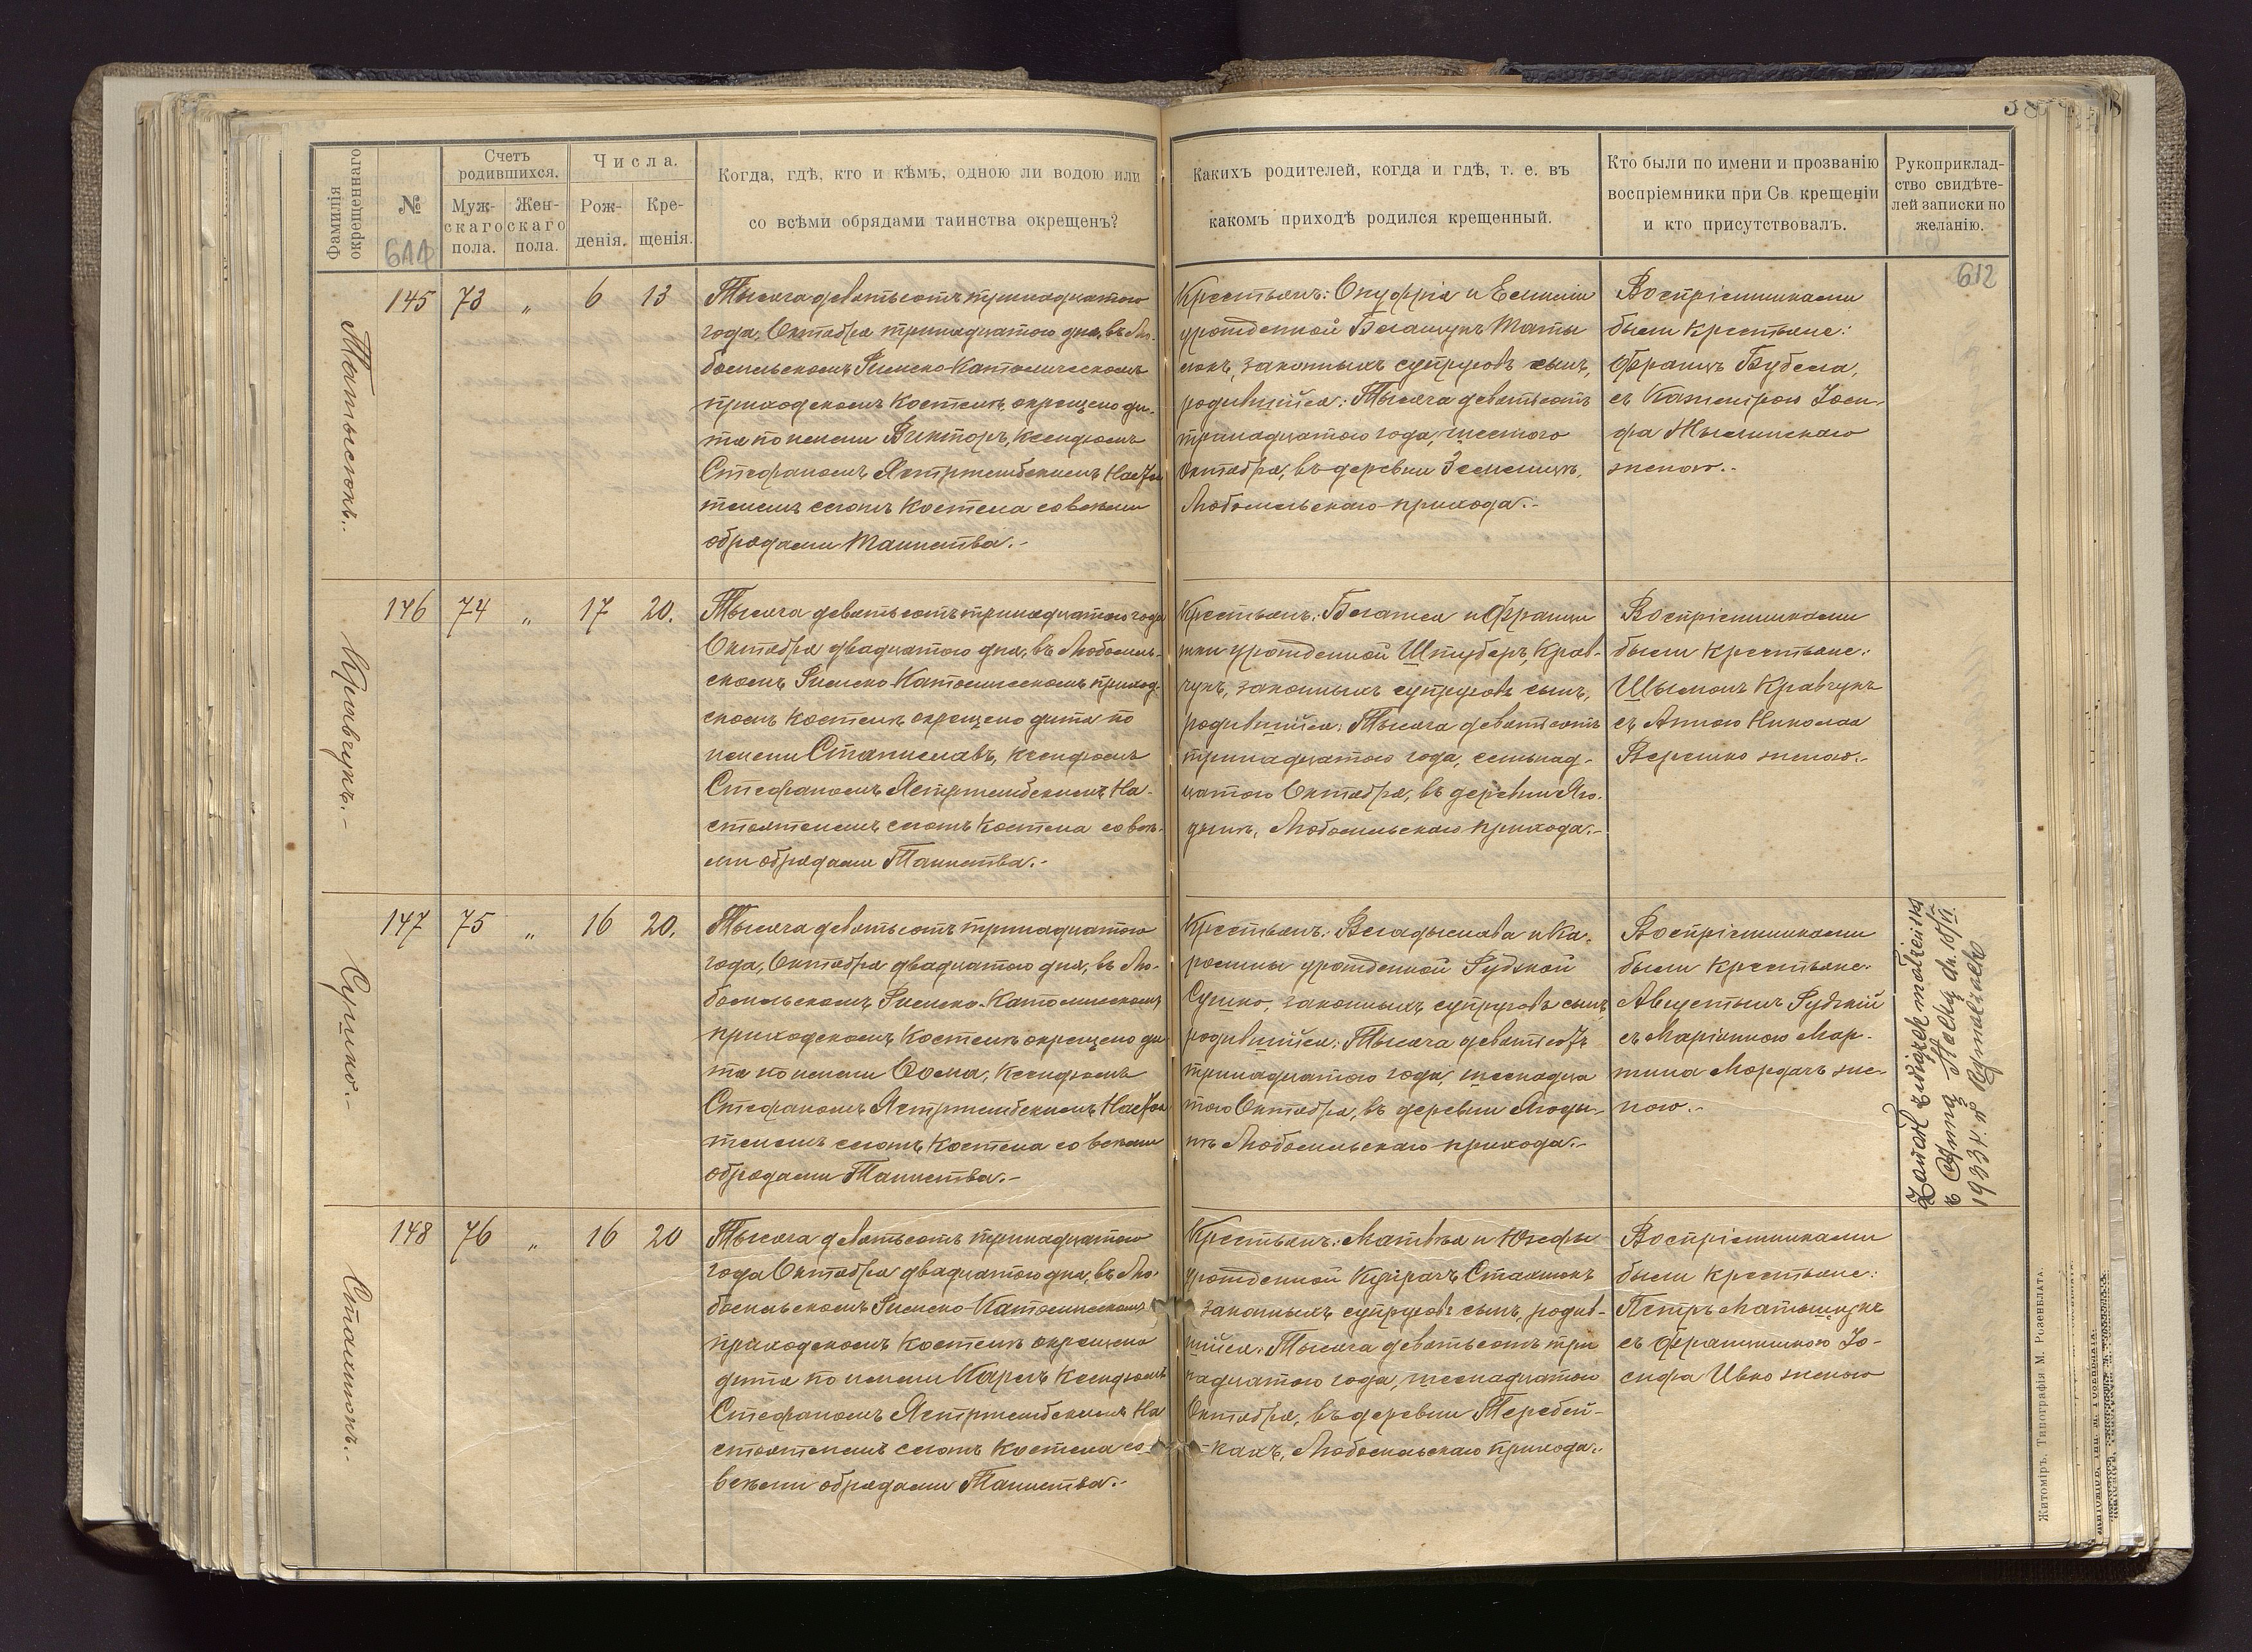 Фамилія окрещеннаго
№
Счетъ родившихся.
Муж-
скаго
пола.
Жен-
скаго
пола.
Числа.
Рож-
денія.
Кре-
щенія.
Когда, гдѣ, кто и кѣмъ, одною ли водою или
со всѣми обрядами таинства окрещенъ?
Какихъ родителей, когда и гдѣ, т. е. въ
какомъ приходѣ родился крещенный.
Кто были по имени и прозванію
воспріемники при Св. крещеніи
и кто присутствовалъ.
Рукоприклад-
ство свидѣте-
лей записки по
желанію.
612
145 73 „ 6 13
Тысяча девятьсотъ тринадцатого
года, Октября тринадцатого дня, въ Лю-
бомльскомъ Римско-Католическомъ
приходскомъ костелѣ, окрещено ди-
тя по имени Викторъ, Ксендзомъ
Стефаномъ Ястржембскимъ Настоя
телемъ сего костела со всѣми
обрядами Таинства.-
Крестьянъ: Онуфрія и Емиліи
урожденной Маты
люкъ, законныхъ супруговъ сынъ,
родившійся: Тысяча девятьсотъ
тринадцатого года, шестого
Октября, въ деревни Земелицѣ,
Любомльскаго прихода.-
Воспріемниками
были крестьяне:
Францъ Бубела,
съ Катериною Іоси-
фа
женою.-
146 74 „ 17 20.
Кравчукъ.-
Тысяча девятьсотъ тринадцатого года
Октября двадцатого дня, въ Любомль-
скомъ Римско-Католическомъ приход-
скомъ костелѣ окрещено дитя по
имени Станиславъ, Ксендзомъ
Стефаномъ Ястржембскимъ На-
стоятелемъ сего костела со всѣ-
ми обрядами Таинства.-
Крестьянъ: и Францы
шки урожденной Штуберъ, Крав-
чукъ, законныхъ супруговъ сынъ,
родившійся: Тысяча девятьсотъ
тринадцатого года, семьнад-
цатого Октября, въ деревни Яго-
дынѣ, Любомльскаго прихода.-
Воспріемниками
были крестьяне:
Шымонъ Кравчукъ
съ Анною Николая
Верешко женою.-
147 75 „ 16 20.
Сушко.-
Тысяча девятьсотъ тринадцатого
года, Октября двадцатого дня, въ Лю-
бомльскомъ Римско-Католическомъ
приходскомъ костелѣ окрещено ди
тя по имени Ѳома, Ксендзомъ
Стефаномъ Ястржембскимъ Настоя
телемъ сего костела со всѣми
обрядами Таинства.-
Крестьянъ: Владыслава и Ка-
ролины урожденной Рудзкой
Сушко, законныхъ супруговъ сынъ
родившійся: Тысяча девятьсотъ
тринадцатого года, шеснадца
того Октября, въ деревни Ягоды-
нѣ Любомльскаго прихода.-
Воспріемниками
были крестьяне:
Августынъ Рудзкій
съ Маріанною Мар-
тина Мордачъ же-
ною.-
Zawarł związek małżeński
z Anną dn. 18/VI.
1933 r. w Rymaczach
148 76 „ 16 20
Стахнюкъ.-
Тысяча девятьсотъ тринадцатого
года Октября двадцатого дня, въ Лю-
бомльскомъ Римско-Католическомъ
приходскомъ костелѣ окрещено
дитя по имени Каролъ Ксендзомъ
Стефаномъ Ястржембскимъ На
стоятелемъ сего костела со-
всѣми обрядами Таинства.-
Крестьянъ: Матвѣя и Юзефы
урожденной Стахнюкъ
законныхъ супруговъ сынъ, родив-
шійся: Тысяча девятьсотъ три
надцатого года, шеснадцатого
Октября, въ деревни Теребей-
кахъ, Любомльскаго прихода.-
Воспріемниками
были крестьяне:
Петръ
съ Франишкою Іо-
сифа Ивко женою
Житоміръ, Типографія М. Розенблата.